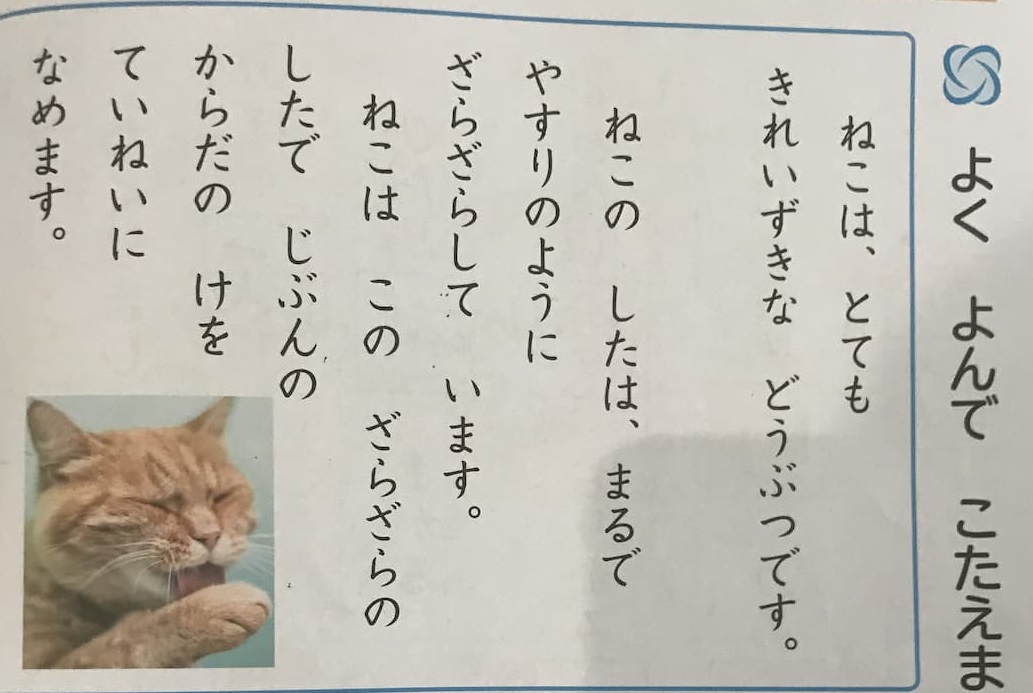 よく よんで こたえま
ねこは、とても
きれいずきな どうぶつです。
ねこの したは、まるで
やすりのように
ざらざらして います。
ねこは この ざらざらの
したで じぶんの
からだの けを
ていねいに
なめます。